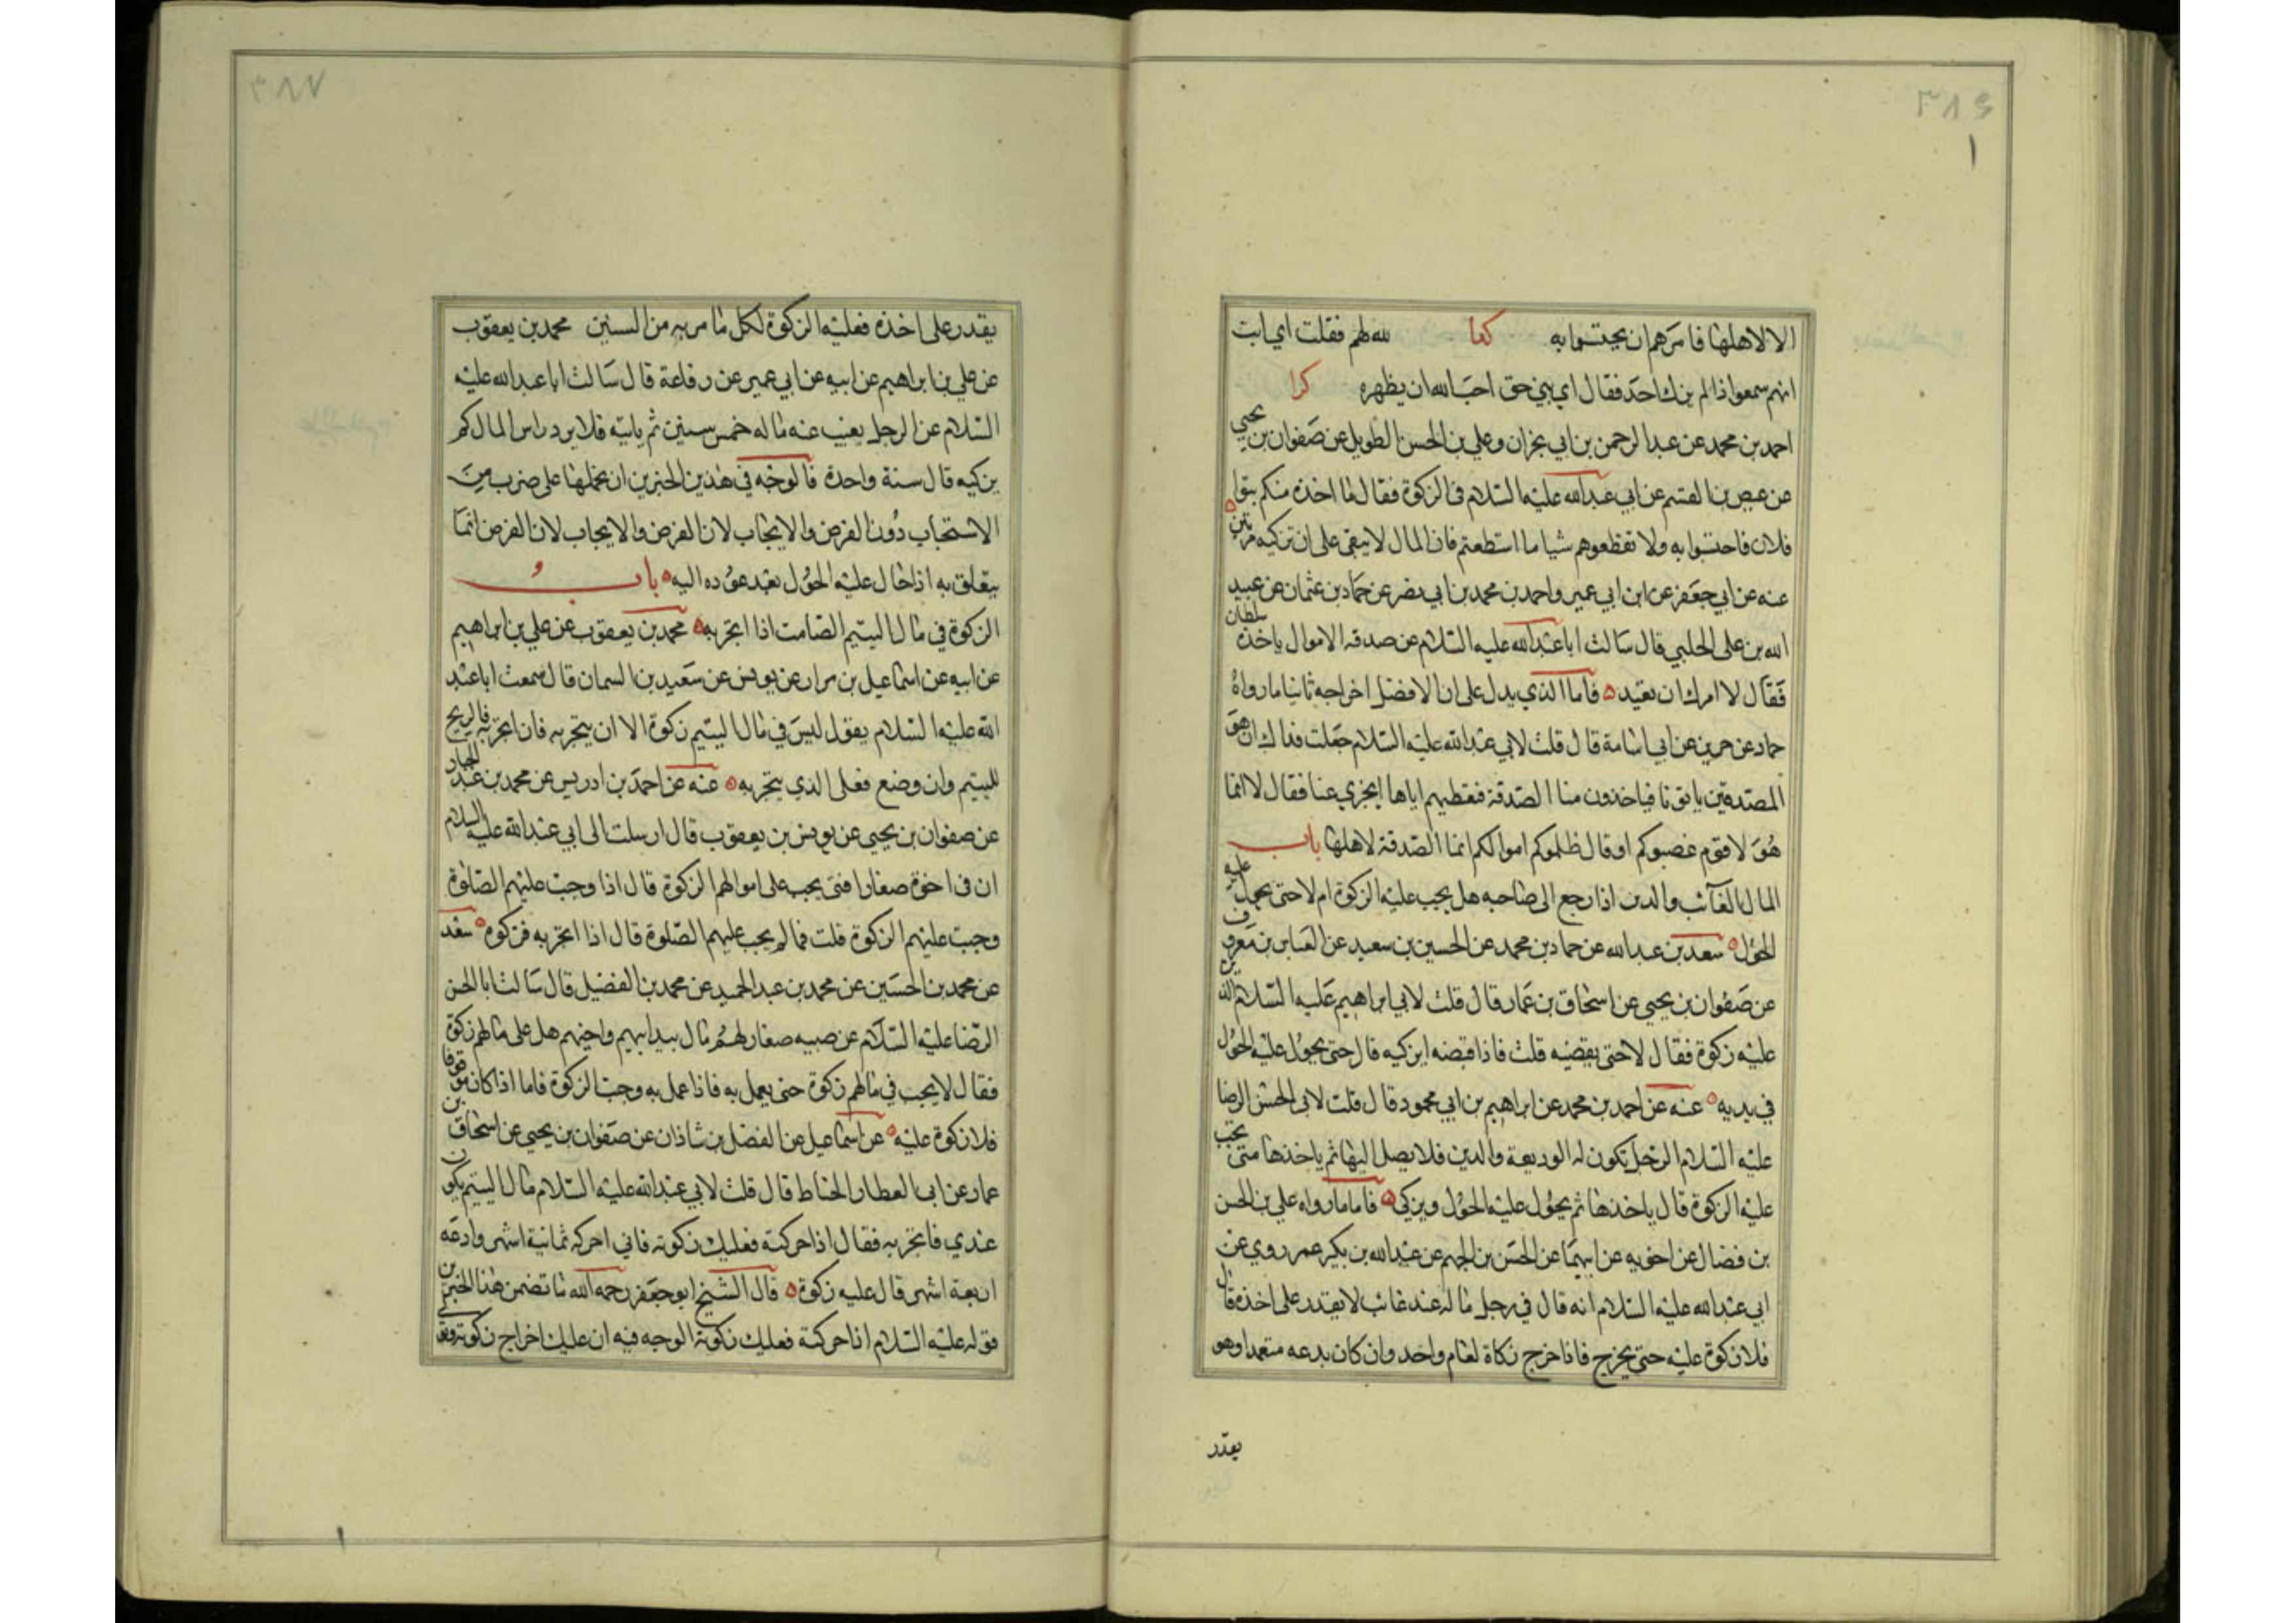 ٣٨٦
١
الا لاهلها فامرهم ان يحتسبوا به كذا لله لهم فقلت اي ابت
انهم سمعوا ذا لم يزك احد فقال اي بني حق احب الله ان يظهره كرا
احمد بن محمد عن عبد الرحمن بن ابي نجران وعلي بن الحسن الطويل عن صفوان بن يحيي
عن عيص بن القسم عن ابي عبد الله عليه السلام في الزكوة فقال ما اخذه منكم بنوا
فلان فاحتسبوا به ولا تعطوهم شيا ما استطعتم فان المال لا يبقى على ان تزكيه مرتين
عنه عن ابي جعفر عن ابن ابي عمير واحمد بن محمد بن ابي نصر عن حماد بن عثمان عن عبيد
الله بن على الحلبي قال سالت ابا عبد الله عليه السلام عن صدقة الاموال ياخذه سلطان
فقال لا امرك ان تعيد فاما الذي يدل على ان الافضل اخراجه ثانيا ما رواه
حماد عن حريز عن ابي اسامة قال قلت لابي عبد الله عليه السلام جعلت فداك ان هؤ
المصتدقين ياتونا فياخذون منا الصدقة فنعطيهم اياها ايجزي عنا فقال لا انما
هؤلا قوم غصبوكم او قال ظلموكم اموالكم انما الصدقة لاهلها باب
المال الغائب والدين اذا رجع الى صاحبه هل يجب عليه الزكوة ام لا حتى يحول عليه
الحول سعد بن عبد الله عن حماد بن محمد عن الحسين بن سعيد عن العباس بن معروف
عن صفوان بن يحيي عن اسحاق بن عمار قال قلت لابي ابراهيم عليه السلام الدين
عليه زكوة فقال لا حتى يقضيه قلت فاذا قبضه ايزكيه قال حتى يحول عليه الحول
في يديه عنه عن احمد بن محمد عن ابراهيم بن ابي محمود قال قلت لابي الحسن الرضا
عليه السلام الرجل تكون له الوديعة والدين فلا يصل اليها ثم ياخذها متى يجب
عليه الزكوة قال ياخذها ثم يحول عليه الحول ويزكي فاما ما رواه علي بن الحسن
بن فضال عن اخويه عن ابيهما عن الحسن بن الجهم عن عبد الله بن بكير عمن روي عن
ابي عبد الله عليه السلام انه قال في رجل ماله عند غائب لا يقدر على اخذه قال
فلا زكوة عليه حتى يخرج فاذا خرج زكاة لعام واحد وان كان يدعه متعمدا وهو
يقدر
٣٨٧
يقدر على اخذه فعليه الزكوة لكل ما مر به من السنين محمد بن يعقوب
عن علي بن ابراهيم عن ابيه عن ابي عمير عن رفاعة قال سالت ابا عبد الله عليه
السلام عن الرجل يغيب عنه ماله خمس سنين ثم ياتيه فلا يرد راس المال كم
يزكيه قال سنة واحدة فالوجه في هذين الخبرين ان نحملها على ضرب من
الاستحباب دون الفرض والايجاب لان الفرض والايجاب لان الفرض انما
يتعلق به اذا حال عليه الحول بعد عوده اليه باب
الزكوة في مال اليتيم الصامت اذا اتجر به محمد بن يعقوب عن علي بن ابراهيم
عن ابيه عن اسماعيل بن مرار عن يونس عن سعيد بن السمان قال سمعت ابا عبد
الله عليه السلام يقول ليس في مال اليتيم زكوة الا ان يتجر به فان اتجر به فالربح
لليتيم وان وضع فعلى الذي يتجر به عنه عن احمد بن ادريس عن محمد بن عبد الجبار
عن صفوان بن يحيي عن يونس بن يعقوب قال ارسلت الى ابي عبد الله عليه السلام
ان في اخوة صغارا فمتى يجب على اموالهم الزكوة قال اذا وجبت عليهم الصلوة
وجبت عليهم الزكوة قلت فما لم يجب عليهم الصلوة قال اذا اتجر به فزكوه سعد
عن محمد بن الحسين عن محمد بن عبد الحميد عن محمد بن الفضيل قال سالت ابا الحسن
الرضا عليه السلام عن صبيه صغار لهم مال بيد ابيهم واخيهم هل على مالهم زكوة
فقال لا يجب في مالهم زكوة حتى يعمل به فاذا عمل به وجبت الزكوة فاما اذا كان موقوفا
فلا زكوة عليه عن اسماعيل عن الفضل بن شاذان عن صفوان بن يحيي عن اسحاق بن
عمار عن ابي العطار الحناط قال قلت لابي عبد الله عليه السلام مال اليتيم يكون
عندي فاتجر به فقال اذا حركته فعليك زكوته فاني احركه ثمانية اشهر وادعه
اربعة اشهر قال عليه زكوة قال الشيخ ابو جعفر رحمه الله ما تضمن هذا الخبرين
قوله عليه السلام اذا حركته فعليك زكوته الوجه فيه ان عليك اخراج زكوته